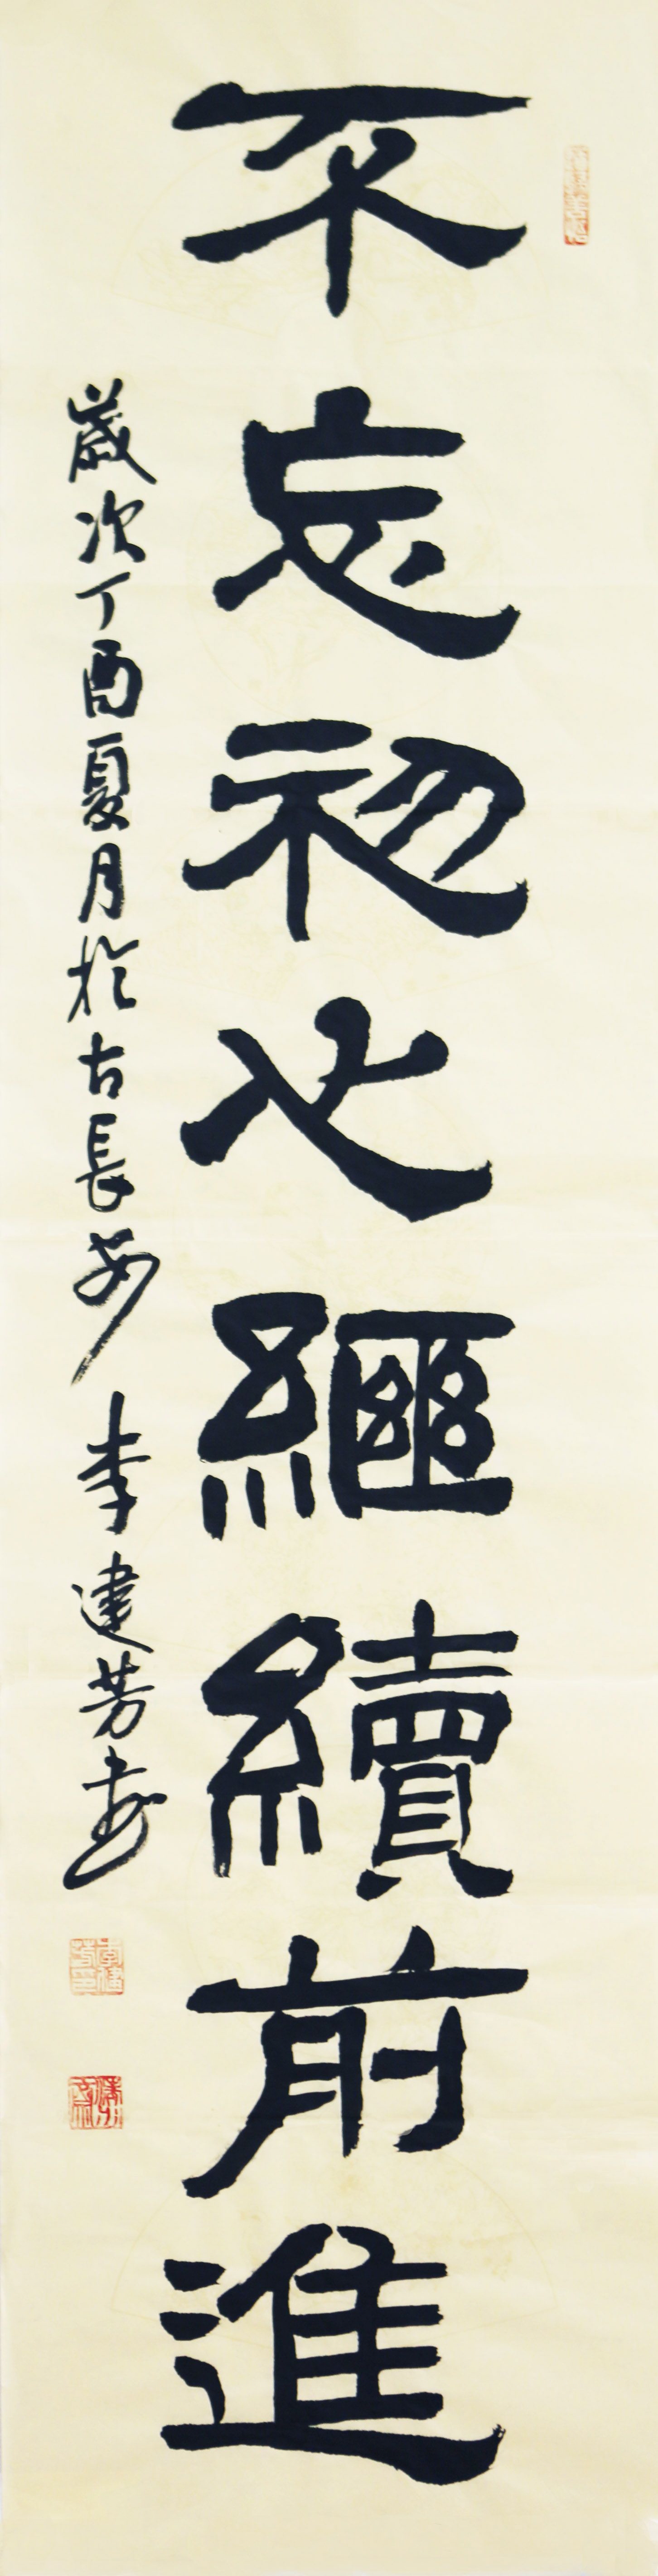 不忘初心繼續前進
歲次丁酉夏月於古長安李建芳書